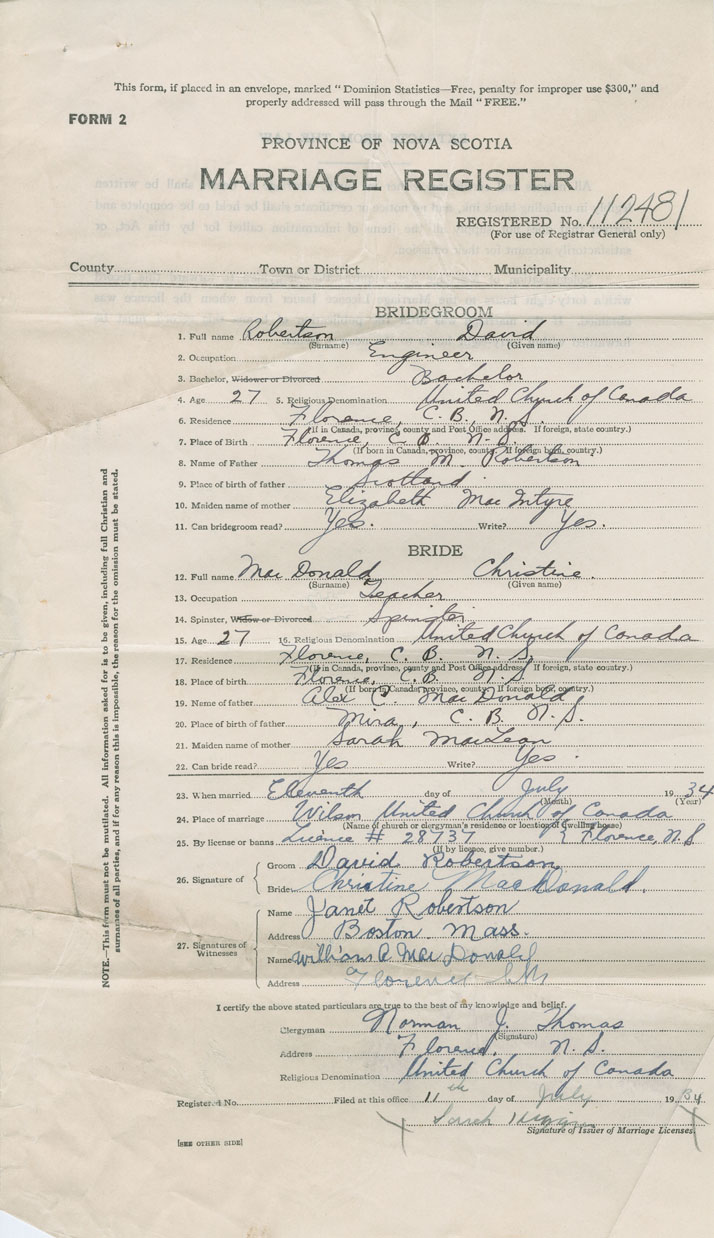 This form, if placed in an envelope, marked "Dominion Statistics—Free, penalty for improper use $300," and
properly addressed will pass through the Mail "FREE."
FORM 2
PROVINCE OF NOVA SCOTIA
MARRIAGE REGISTER
REGISTERED No. 112481
(For use of Registrar General only)
County Town or District Municipality
BRIDEGROOM
1. Full name Robertson David
(Surname) (Given name)
2. Occupation Engineer
3. Bachelor, Widower or Divorced Bachelor
4. Age 27 5. Religious Denomination United Church of Canada
6. Residence Florence, C. B., N. S.
(If in Canada, province, county and Post Office address. If foreign, state country.)
7. Place of Birth Florence, C. B. N. S.
(If born in Canada, province, county. If foreign born, country.)
8. Name of Father Thomas M. Robertson
9. Place of birth of father Scotland
10. Maiden name of mother Elizabeth MacIntyre
11. Can bridegroom read? Yes. Write? Yes.
BRIDE
12. Full name MacDonald Christine.
(Surname) (Given name)
13. Occupation Teacher
14. Spinster, Widow or Divorced Spinster
15. Age 27 16. Religious Denomination United Church of Canada
17. Residence Florence, C. B. N. S.
(If in Canada, province, county and Post Office address. If foreign, state country.)
18. Place of birth Florence, C. B. N. S.
(If born in Canada, province, county. If foreign born, country.)
19. Name of father Alex C. MacDonald
20. Place of birth of father Mira, C. B. N. S.
21. Maiden name of mother Sarah MacLean
22. Can bride read? Yes Write? Yes.
23. When married Eleventh day of July 1934
(Month) (Year)
24. Place of marriage Wilson United Church of Canada
(Name of church or clergyman's residence or location of dwelling house)
25. By license or banns Licence # 28737 Florence, N.S.
(If by licence, give number.)
26. Signature of
Groom David Robertson
Bride Christine MacDonald.
27. Signatures of Witnesses
Name Janet Robertson
Address Boston Mass.
Name William R. MacDonald
Address Florence
I certify the above stated particulars are true to the best of my knowledge and belief.
Clergyman Norman J. Thomas
(Signature)
Address Florence, N. S.
Religious Denomination United Church of Canada
Registered No. Filed at this office 11th day of July 1934
Sarah
Signature of Issuer of Marriage Licenses.
[SEE OTHER SIDE]
NOTE.—This form must not be mutilated. All information asked for is to be given, including full Christian and
surnames of all parties, and if for any reason this is impossible, the reason for the omission must be stated.